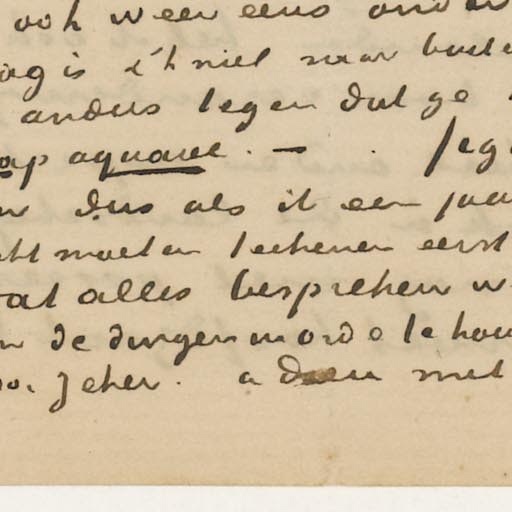 ook weer eens onder
ag is 't niet naar buiten
anders tegen dat ge
ap aquarel. — .
dus als ik een paar
cht moeten teekenen eerst
at alles bespreken w
n de dingen in orde te hou
oor zeker. adieu met